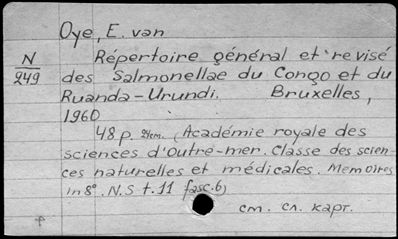 Oye, E. van
N
249
Répertoire général et revisé
des Salmonellae du Congo et du
Ruanda-Urundi. Bruxelles,
1960
48p. 24cm. (Académie royale des
sciences d'outre-mer. Classe des scien-
ces naturelles et médicales. Memoires
in 8°. N.S t.11 fasc.6)
см. сл. карт.